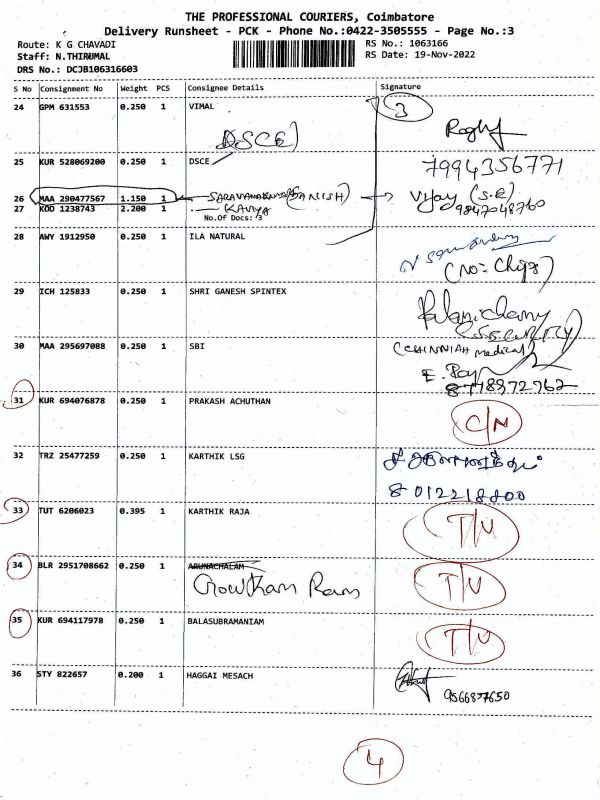 THE PROFESSIONAL COURIERS, Coimbatore
Delivery Runsheet - PCK - Phone No.:0422-3505555 - Page No.:3
Route: K G CHAVADI RS No.: 1063166
Staff: N.THIRUMAL RS Date: 19-Nov-2022
DRS No.: DCJB106316603
S No Consignment No Weight PCS Consignee Details Signature
24 GPM 631553 0.250 1 VIMAL 3
DSCE)
25 KUR 528069200 0.250 1 DSCE 7994356771
26 MAA 290477567 1.150 1 (DANISH) Vijay (S.R)
27 KOD 1238743 2.200 1 KAVIYA 9847048760
No.Of Docs: 3
28 AWY 1912950 0.250 1 ILA NATURAL
(NO= Chips)
29 ICH 125833 0.250 1 SHRI GANESH SPINTEX
SECURITY)
30 MAA 295697088 0.250 1 SBI (CHINNIAH medical)
8778972962
31 KUR 694076878 0.250 1 PRAKASH ACHUTHAN C/N
32 TRZ 25477259 0.250 1 KARTHIK LSG
8012218800
33 TUT 6206023 0.395 1 KARTHIK RAJA T/U
34 BLR 2951708662 0.250 1 ARUNACHALAM T/U
Gowtham Ram
35 KUR 694117978 0.250 1 BALASUBRAMANIAM T/U
36 STY 822657 0.200 1 HAGGAI MESACH
9566877650
4